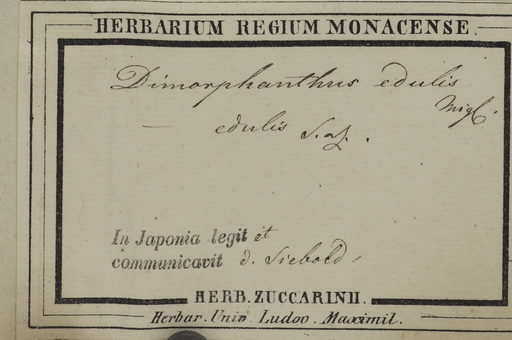 HERBARIUM REGIUM MONACENSE.
Dimorphanthus edulis
Miql.
— edulis S. &
In Japonia legit et
communicavit d. Siebold.
HERB. ZUCCARINII.
Herbar. Univ. Ludov. Maximil.